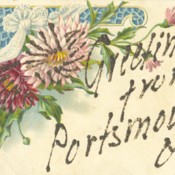 Greetin
from
Portsmou
O